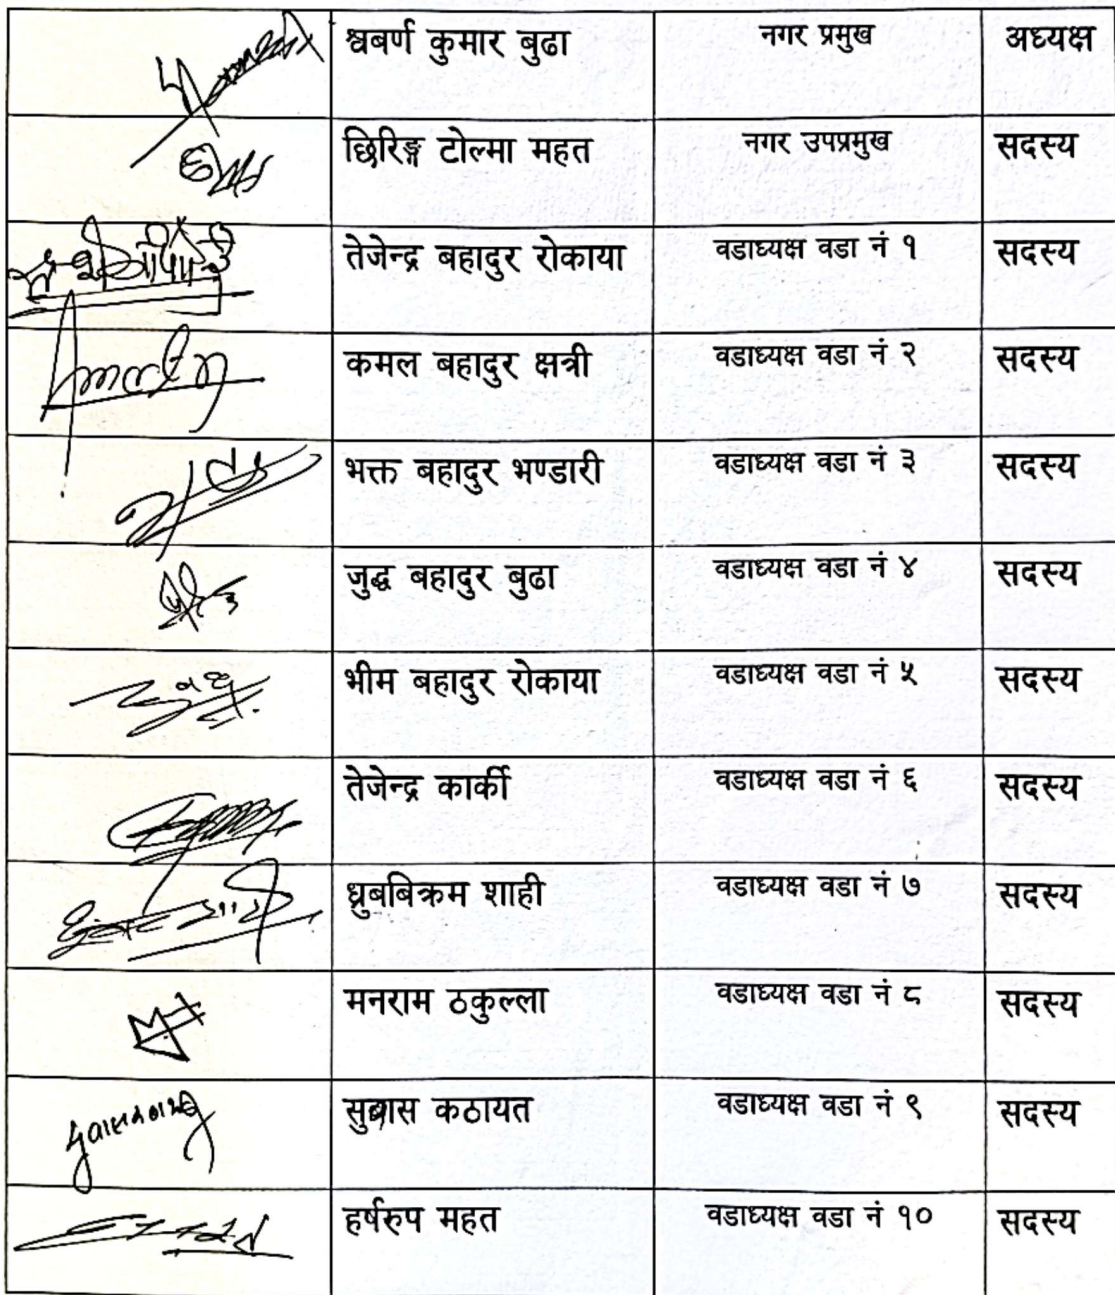 श्वबर्ण कुमार बुढा नगर प्रमुख अध्यक्ष
छिरिङ्ग टोल्मा महत नगर उपप्रमुख सदस्य
तेजेन्द्र बहादुर रोकाया वडाध्यक्ष वडा नं १ सदस्य
कमल बहादुर क्षत्री वडाध्यक्ष वडा नं २ सदस्य
भक्त बहादुर भण्डारी वडाध्यक्ष वडा नं ३ सदस्य
जुद्ध बहादुर बुढा वडाध्यक्ष वडा नं ४ सदस्य
भीम बहादुर रोकाया वडाध्यक्ष वडा नं ५ सदस्य
तेजेन्द्र कार्की वडाध्यक्ष वडा नं ६ सदस्य
ध्रुबबिक्रम शाही वडाध्यक्ष वडा नं ७ सदस्य
मनराम ठकुल्ला वडाध्यक्ष वडा नं ८ सदस्य
सुबास कठायत वडाध्यक्ष वडा नं ९ सदस्य
हर्षरुप महत वडाध्यक्ष वडा नं १० सदस्य